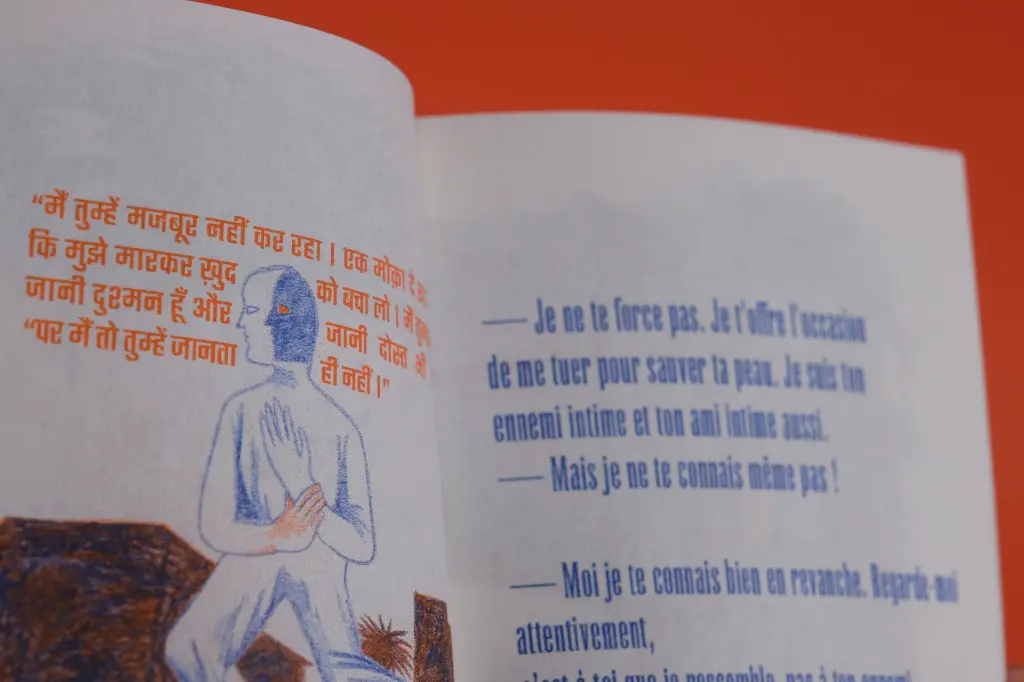 “मैं तुम्हें मजबूर नहीं कर रहा। एक मोक़ा दे
कि मुझे मारकर ख़ुद को बचा लो। मैं
जानी दुश्मन हूँ और जानी दोस्त भी
“पर मैं तो तुम्हें जानता ही नहीं।”
— Je ne te force pas. Je t'offre l'occasion
de me tuer pour sauver ta peau. Je suis ton
ennemi intime et ton ami intime aussi.
— Mais je ne te connais même pas !
— Moi je te connais bien en revanche. Regarde-moi
attentivement,
c'est à toi que je ressemble, pas à ton ennemi